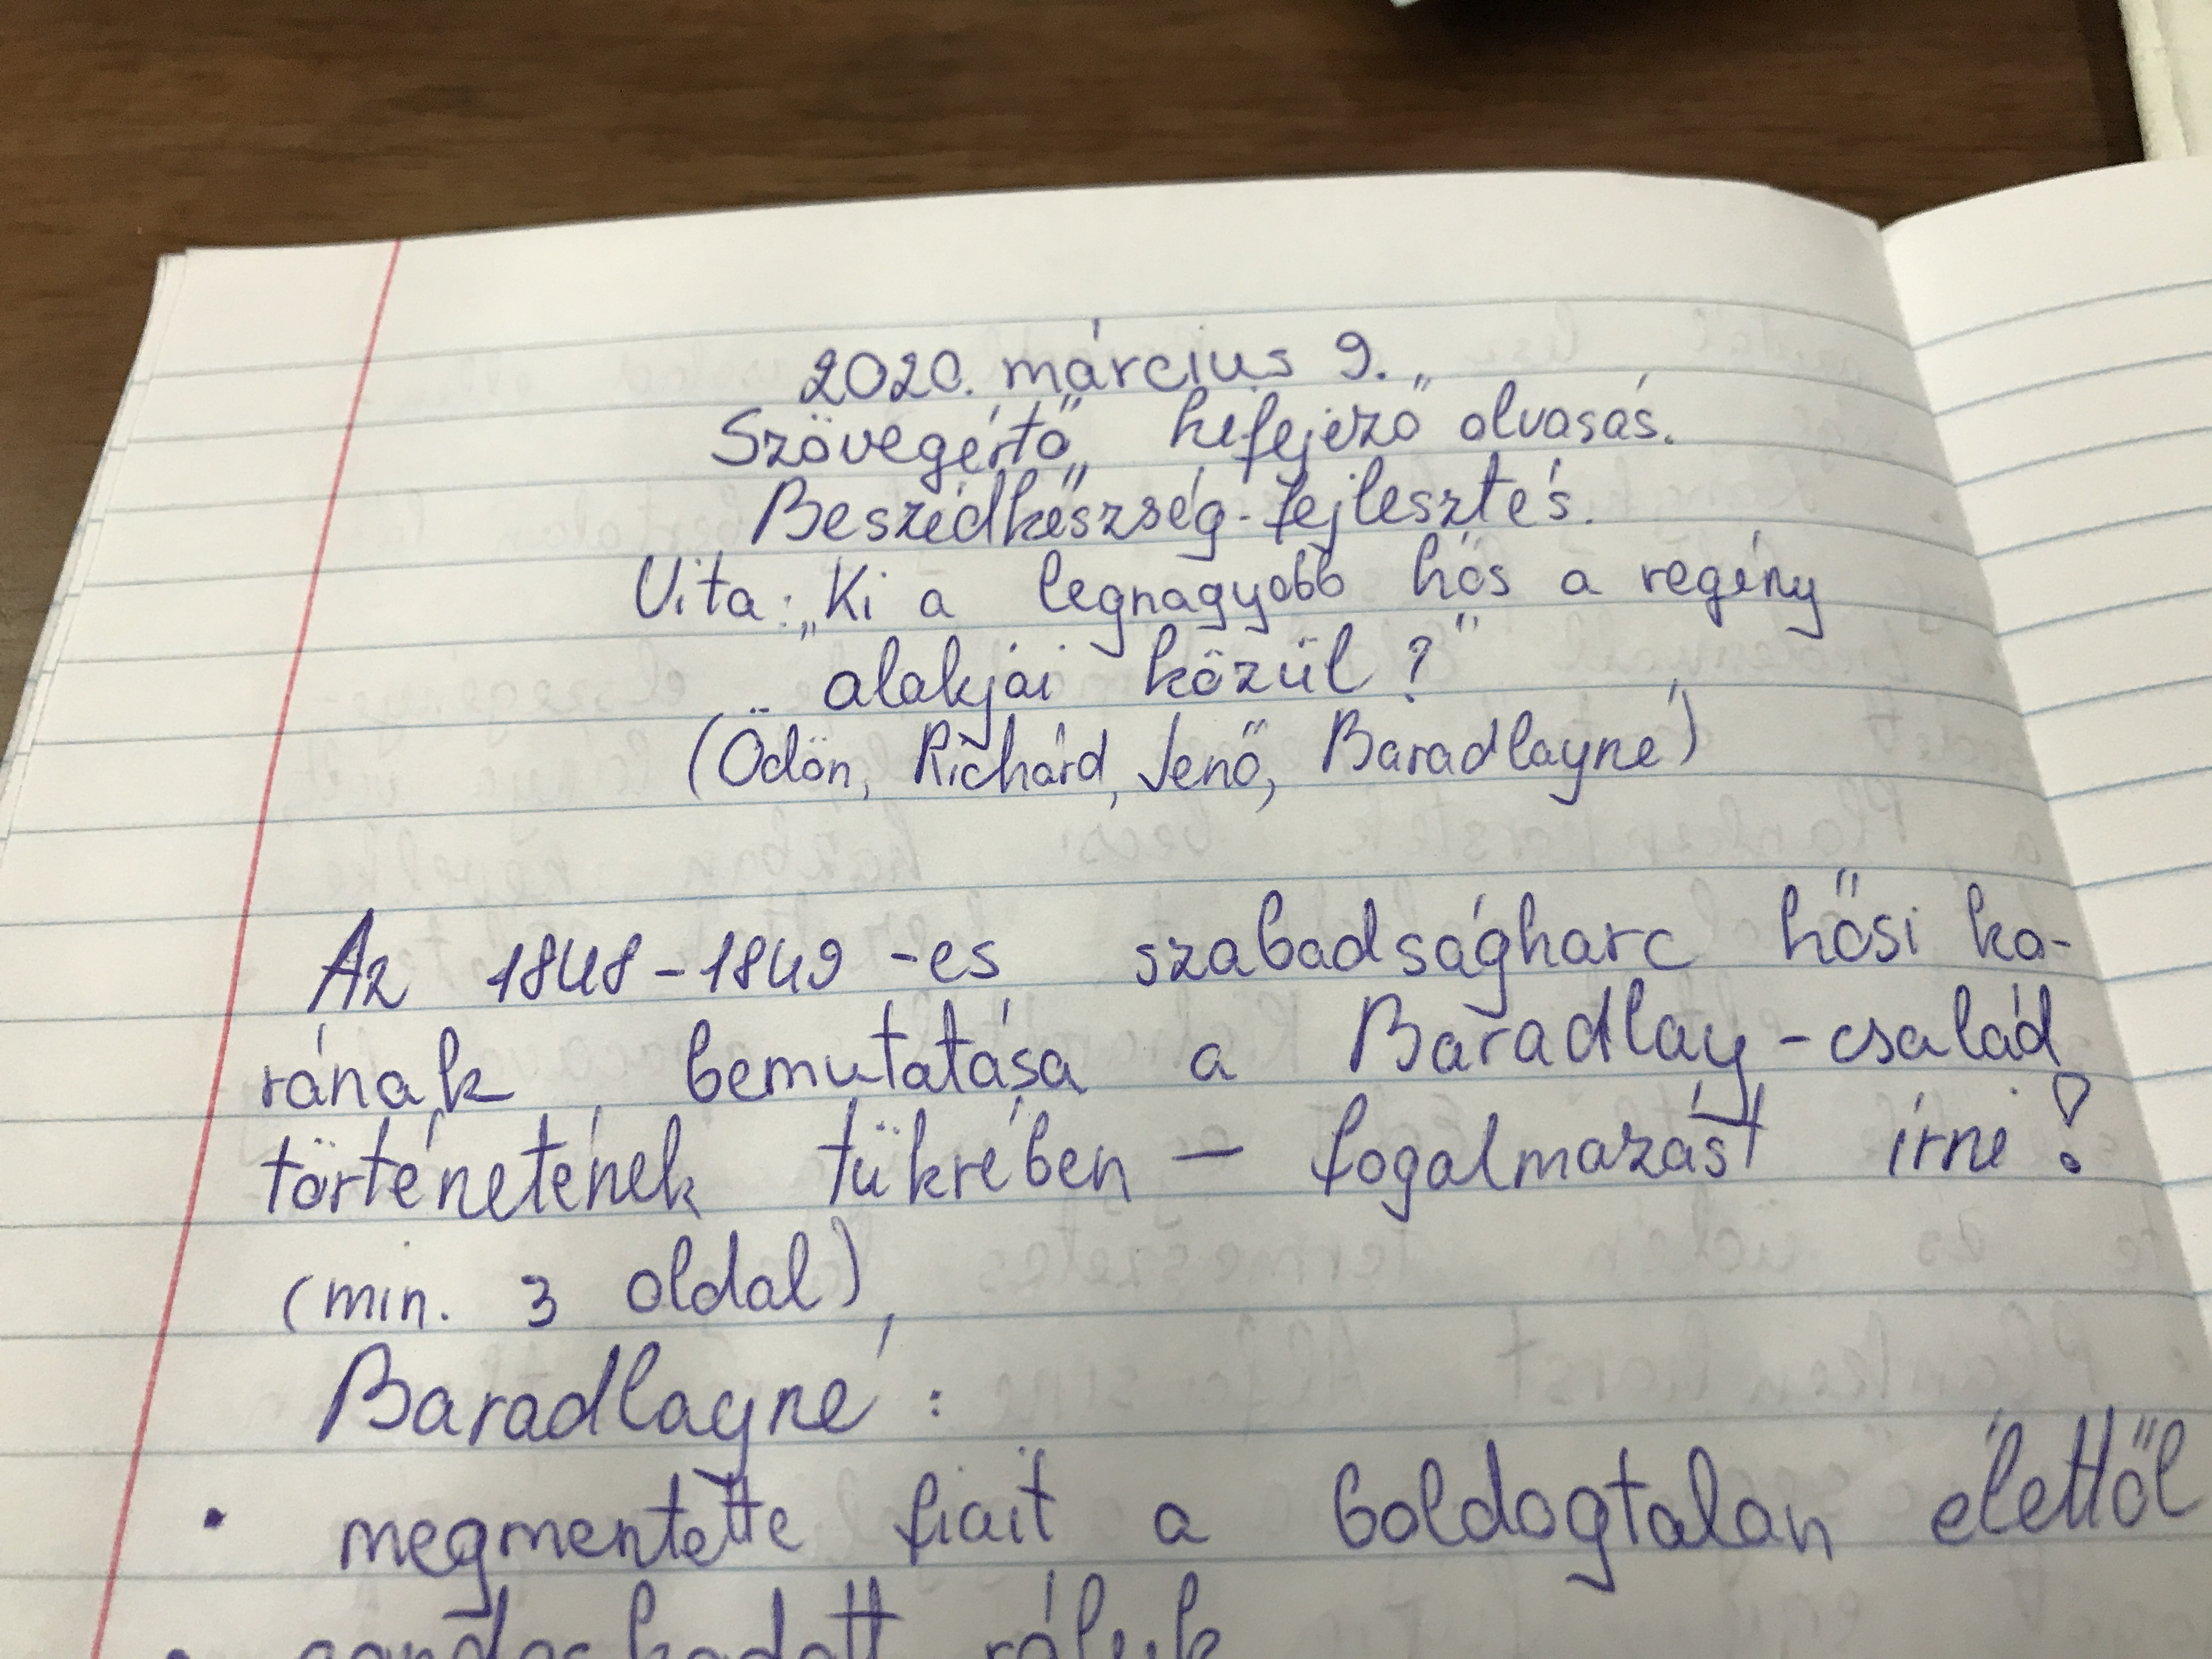 2020. március 9.
Szövegértő, kifejező olvasás.
Beszédkészség-fejlesztés.
Vita: „Ki a legnagyobb hős a regény
alakjai közül?"
(Ödön, Richárd, Jenő, Baradlayné)
Az 1848-1849-es szabadságharc hősi ko-
rának bemutatása a Baradlay-család
történetének tükrében - fogalmazást írni!
(min. 3 oldal)
Baradlayné:
• megmentette fiait a boldogtalan élettől
• gondoskodott róluk